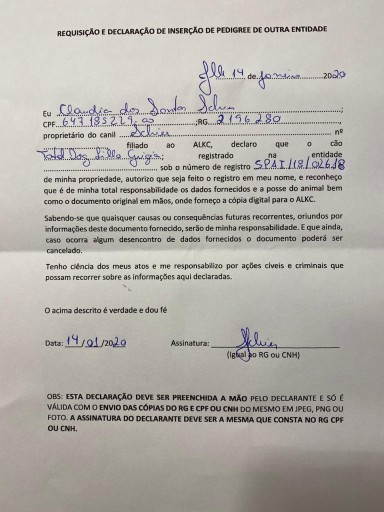 REQUISIÇÃO E DECLARAÇÃO DE INSERÇÃO DE PEDIGREE DE OUTRA ENTIDADE
14 de Janeiro 2020
Eu Claudia dos Santos Silva ;
CPF 647185229 00 ;RG 2196280 ,
proprietário do canil nº
filiado ao ALKC, declaro que o cão
Total Dog registrado na entidade
sob o número de registro SPAI/18/02618
de minha propriedade, autorizo que seja feito o registro em meu nome, e reconheço
que é de minha total responsabilidade os dados fornecidos e a posse do animal bem
como o documento original em mãos, onde forneço a cópia digital para o ALKC.
Sabendo-se que quaisquer causas ou consequências futuras recorrentes, oriundos por
informações deste documento fornecido, serão de minha responsabilidade. E que ainda,
caso ocorra algum desencontro de dados fornecidos o documento poderá ser
cancelado.
Tenho ciência dos meus atos e me responsabilizo por ações cíveis e criminais que
possam recorrer sobre as informações aqui declaradas.
O acima descrito é verdade e dou fé
Data: 14/01/2020 Assinatura:
(Igual ao RG ou CNH)
OBS: ESTA DECLARAÇÃO DEVE SER PREENCHIDA A MÃO PELO DECLARANTE E SÓ É
VÁLIDA COM O ENVIO DAS CÓPIAS DO RG E CPF OU CNH DO MESMO EM JPEG, PNG OU
FOTO. A ASSINATURA DO DECLARANTE DEVE SER A MESMA QUE CONSTA NO RG CPF
OU CNH.